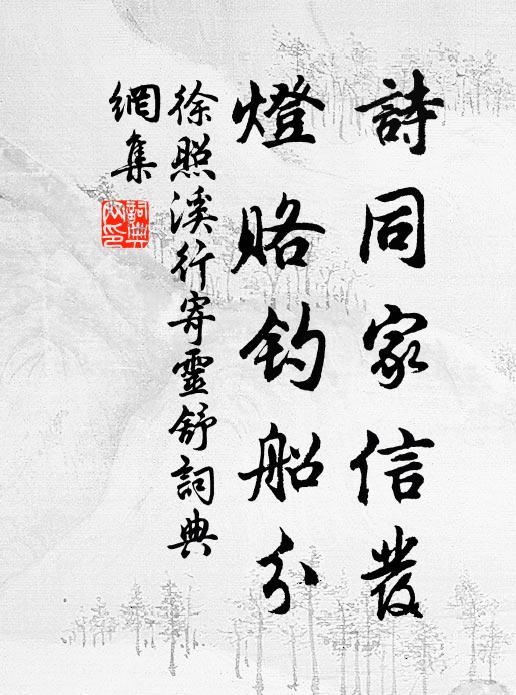 詩同家信發
燈賂釣船分
徐照溪行寄靈舒詞典
網集